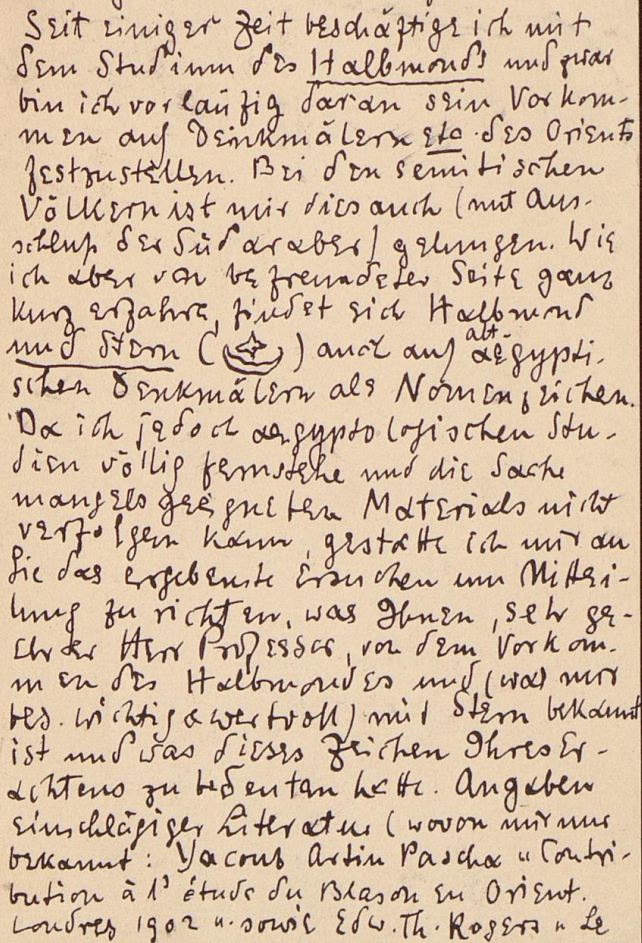 Seit einiger Zeit beschäftige ich mit
dem Studium des Halbmonds und zwar
bin ich vorläufig daran sein Vorkom-
men auf Denkmälern etc. des Orients
festzustellen. Bei den semitischen
Völkern ist mir dies auch (mit Aus-
schluß der Südaraber) gelungen. Wie
ich aber von befreundeter Seite ganz
kurz erfahre, findet sich Halbmond
und Stern ( ) auch auf alt-
aegypti-
schen Denkmälern als Nomenzeichen.
Da ich jedoch aegyptologischen Stu-
dien völlig fernstehe und die Sache
mangels geeigneten Materials nicht
verfolgen kann, gestatte ich mir an
Sie das ergebenste Ersuchen um Mittei-
lung zu richten, was Ihnen, sehr ge-
ehrter Herr Professor, von dem Vorkom-
men des Halbmondes und (was mir
bes. wichtig & wertvoll) mit Stern bekannt
ist und was dieses Zeichen Ihres Er-
achtens zu bedeuten hatte. Angaben
einschlägiger Literatur (wovon mir nur
bekannt: Yacoub Artin Pascha "Contri-
bution à l'étude du Blason en Orient.
Londres 1902". sowie Edw. Th. Rogers "Le